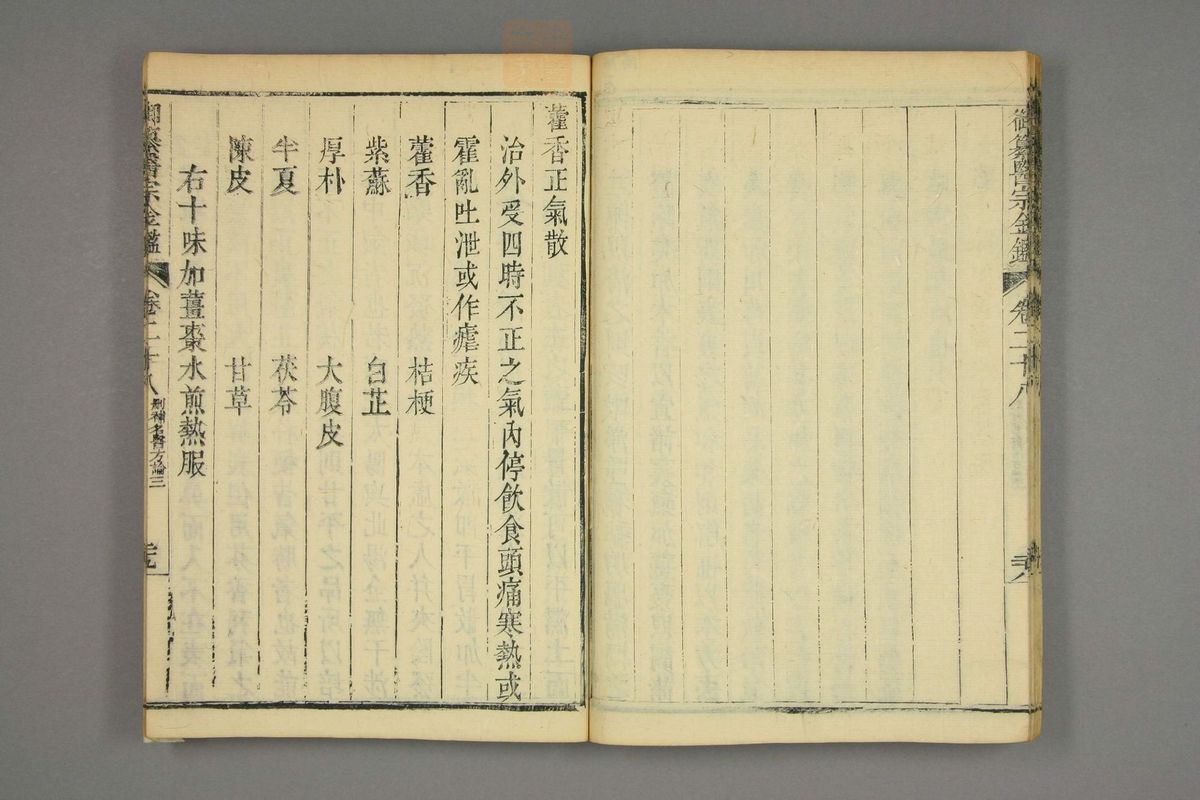 御纂醫宗金鑑
卷二十八
藿香正氣散
治外受四時不正之氣內停飲食頭痛寒熱或
霍亂吐泄或作瘧疾
藿香 桔梗
紫蘇 白芷
厚朴 大腹皮
半夏 茯苓
陳皮 甘草
右十味加薑棗水煎熱服
御纂醫宗金鑑
卷二十八
刪補名醫方論三